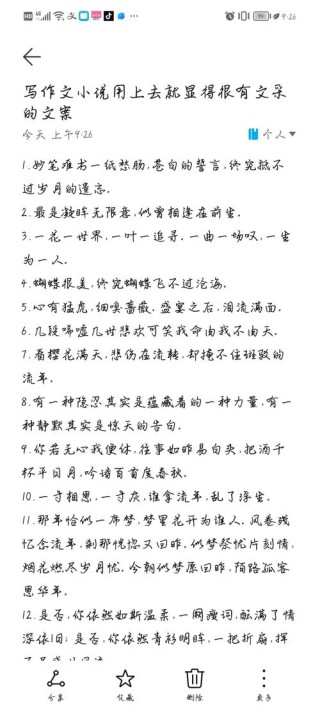 9:26
写作文小说用上去就显得很有文采
的文案
今天 上午9:26
个人
1.妙笔难书一纸愁肠,苍白的誓言,终究抵不
过岁月的遗忘。
2.最是凝眸无限意,似曾相逢在前生。
3.一花一世界,一叶一追寻。一曲一场叹,一生
为一人。
4.蝴蝶很美,终究蝴蝶飞不过沧海。
5.心有猛虎,细嗅蔷薇。盛宴之后,泪流满面。
6.几段唏嘘几世悲欢可笑我命由我不由天。
7.看樱花满天,悲伤在流转,却掩不住斑驳的
流年。
8.有一种隐忍其实是蕴藏着的一种力量,有一
种静默其实是惊天的告白。
9.你若无心我便休,往事如昨易白头,把酒千
杯平日月,吟诗百首度春秋。
10.一寸相思,一寸灰,谁拿流年,乱了浮生。
11.那年恰似一席梦,梦里花开为谁人。风卷残
忆念流年,刹那恍惚又回昨。似梦祭忧片刻情,
烟花燃尽岁月忧。今朝似梦原回昨,陌路孤客
思华年。
12.是否,你依然如斯温柔,一阙瘦词,酝满了情
深依旧;是否,你依然青衫明眸,一把折扇,挥
分享
收藏
删除
更多